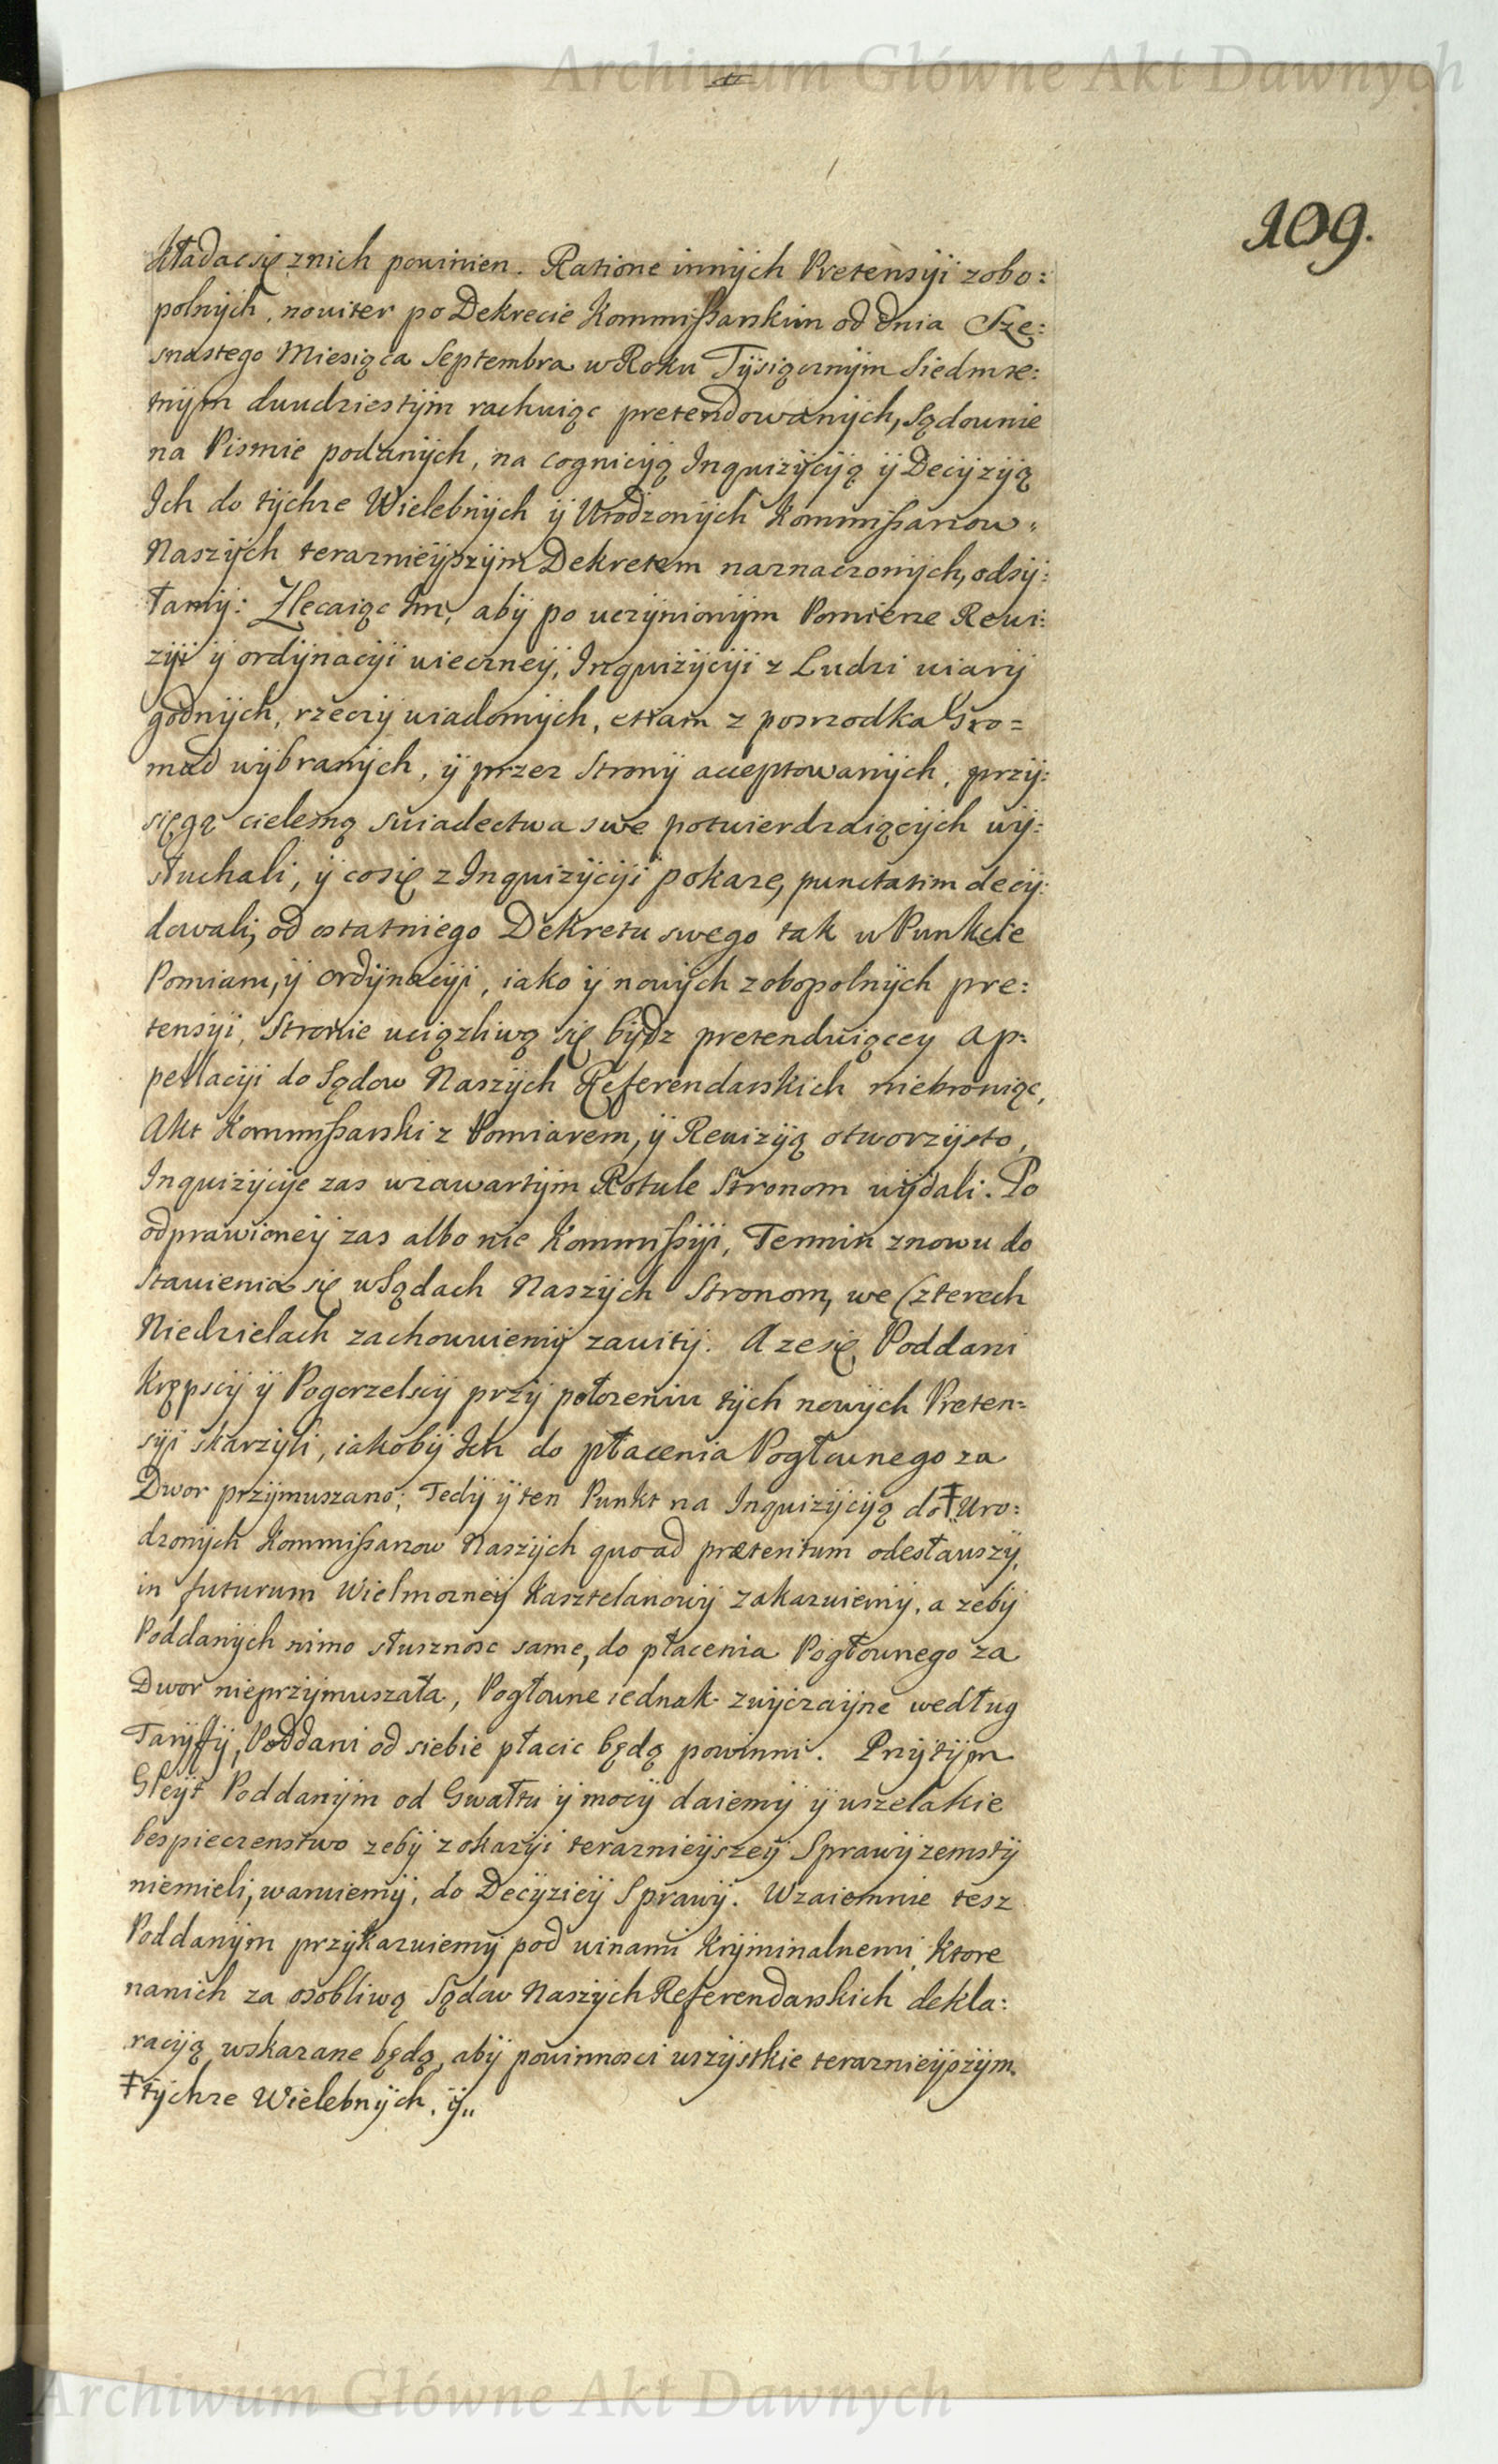 Archiwum Główne Akt Dawnych
109.
kładac się znich powinien. Ratione innÿch Pretensÿi zobo:
polnÿch, nowiter po Dekrecie Kommißarskim od dnia Sze:
snastego Miesiąca Septembra w Roku Tÿsiącznÿm Siedmse:
tnÿm dwudziestÿm rachuiąc pretendowanÿch, Sądownie
na Pismie podanÿch, na cognicÿą Inquizÿcÿą ÿ Decÿzÿą
Ich do tÿchze Wielebnÿch ÿ Urodzonÿch Kommißarzow
Naszÿch teraznieÿszÿm Dekretem naznaczonÿch, odsÿ:
łamÿ: Zlecaiąc Im, abÿ po uczÿnionÿm Pomierze Rewi:
zÿi ÿ ordÿnacÿi wieczneÿ, Inquizÿcÿi z Ludzi wiarÿ
godnÿch, rzeczÿ wiadomÿch, etiam z posrzodka Gro=
mad wÿbranÿch, ÿ przez Stronÿ acceptowanÿch, przÿ:
sięgą cielesną swiadectwa swe potwierdzaiącÿch wÿ:
słuchali, ÿ cosię z Inquizÿcÿi pokaze, punctatim decÿ:
dowali, od ostatniego Dekretu swego tak w Punkcie
Pomiaru, ÿ ordÿnacÿi, iako ÿ nowÿch zobopolnÿch pre:
tensÿi, Stronie uciązliwą się bÿdz pretenduiącey Ap:
pellacÿi do Sądow Naszÿch Referendarskich niebroniąc,
Akt Kommißarski z Pomiarem, ÿ Rewizÿą otworzÿsto,
Inquizÿcÿe zas wzawartÿm Rotule Stronom wÿdali. Po
odprawioneÿ zas albo nie Kommißÿi, Termin znowu do
stawienia się w Sądach Naszÿch Stronom, we Czterech
Niedzielach zachowuiemÿ zawitÿ. A ze się Poddani
Krępscÿ ÿ Pogorzelscÿ przÿ połozeniu tÿch nowÿch Preten=
sÿi skarzÿli, iakobÿ Ich do płacenia Pogłownego za
Dwor przÿmuszano; Tedÿ ÿ ten Punkt na Inquizÿcÿą do ‡ Uro:
dzonÿch Kommißarzow Naszÿch quoad præteritum odesławszÿ,
in futurum Wielmozneÿ Kasztelanowÿ zakazuiemÿ, a zebÿ
Poddanÿch nimo słusznosc same, do płacenia Pogłownego za
Dwor nieprzÿmuszała, Pogłowne iednak zwÿczaÿne według
Tarÿffÿ, Poddani od siebie płacic będą powinni. Przÿtÿm
Gleÿt Poddanÿm od Gwałtu ÿ mocÿ daiemÿ ÿ wszelakie
bespieczenstwo zebÿ z okazÿi terazniejszeÿ Sprawÿ zemstÿ
niemieli, waruiemÿ, do Decÿzieÿ Sprawÿ. Wzaiemnie tesz
Poddanÿm przÿkazuiemÿ pod winami Krÿminalnemi, ktore
nanich za osobliwą Sądow Naszÿch Referendarskich dekla:
racÿą wskazane będą, abÿ powinnosci wszÿstkie teraznieÿszÿm
‡ tÿchze Wielebnÿch, ÿ„
Archiwum Główne Akt Dawnych